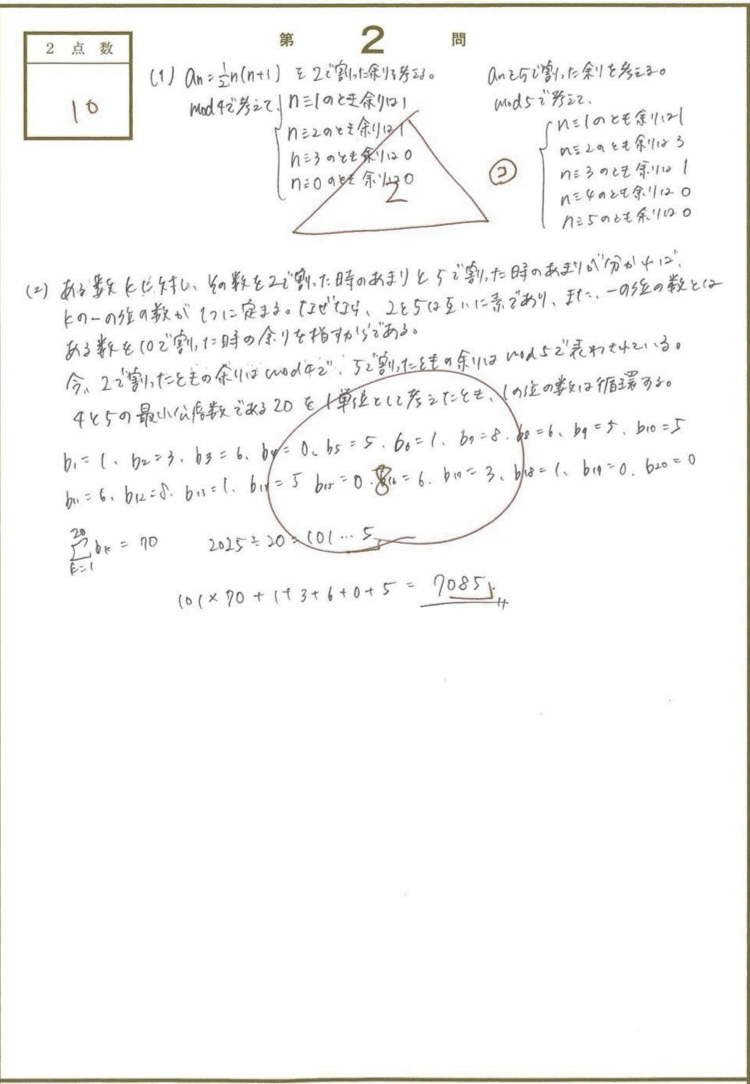 第 2 問
2 点 数
10
(1) an=½n(n+1) を2で割った余りを考える。
mod4で考えて、
n≡1のとき余りは1
n≡2のとき余りは1
n≡3のとき余りは0
n≡0のとき余りは0
2
anを5で割った余りを考える。
mod5で考えて、
n≡1のとき余りは1
n≡2のとき余りは3
n≡3のとき余りは1
n≡4のとき余りは0
n≡5のとき余りは0
(2) ある数kに対し、その数を2で割った時のあまりと5で割った時のあまりが分かれば、
kの一の位の数が1つに定まる。なぜなら、2と5は互いに素であり、また、一の位の数とは
ある数を10で割った時の余りを指すからである。
今、2で割ったときの余りはmod4で、5で割ったときの余りはmod5で表わせれている。
4と5の最小公倍数である20を1単位として考えたとき、1の位の数は循環する。
b₁=1、b₂=3、b₃=6、b₄=0、b₅=5、b₆=1、b₇=8、b₈=6、b₉=5、b₁₀=5
b₁₁=6、b₁₂=8、b₁₃=1、b₁₄=5 b₁₅=0、b₁₆=6、b₁₇=3、b₁₈=1、b₁₉=0、b₂₀=0
8
20Σk=1 bk = 70 2025÷20=101…5
101×70+1+3+6+0+5 = 7085